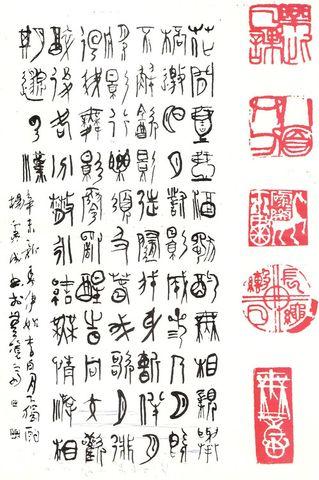 花間壹壺酒獨酌無相親舉
杯邀明月對影成三人月既
不解飲影徒隨我身暫伴月
將影行樂須及春我歌月徘
徊我舞影零亂醒時同交歡
醉後各分散永結無情遊相
期邈雲漢
辛未新春伊始書李白月下獨酌